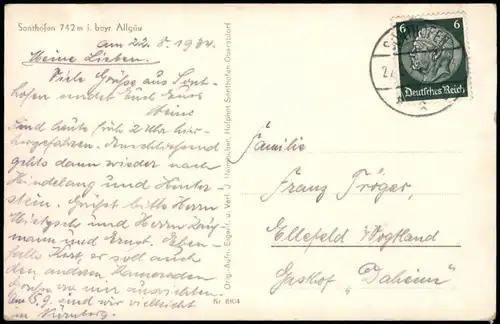 Sonthofen 742 m i. bayr. Allgäu
am 22. 8. 1934.
Meine Lieben.
Viele Grüße aus Sont-
hofen sendet Euch Euer
Heine
Sind heute früh 2 Uhr hier-
hergefahren. Anschliessend
gehts dann wieder nach
Hindelang und Hinter-
stein. Grüßt bitte Herrn
und Herrn
mann und Ernst. Eben-
falls er soll auch
den anderen Kameraden
Grüße von mir ausrichten.
Am 5.9. sind wir vielleicht
in Nürnberg.
Orig.-Aufn. Eigent. u. Verl. J. Heimhuber, Hofphot. Sonthofen-Oberstdorf
Nr. 6104
SONTHOFEN
6 6
Deutsches Reich
Familie
Franz Tröger,
Ellefeld Vogtland
Gasthof „Daheim"